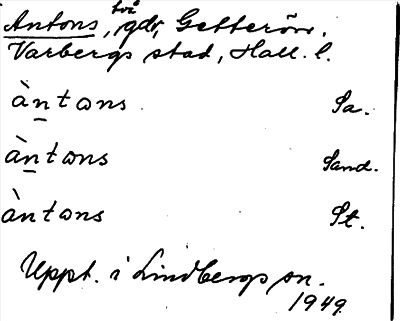 Antons, två gdr, Getterön.
Varbergs stad, Hall. l.
àntɷns Sa.
àntɷns Sand.
àntɷns St.
Uppt. i Lindbergs sn.
1949.